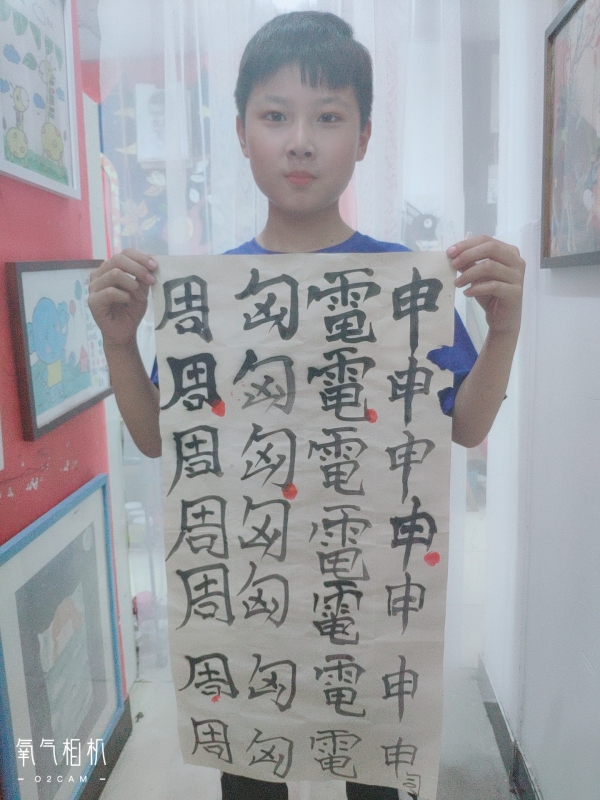 申申申申申申申
電電電電電電電
匈匈匈匈匈匈匈
周周周周周周周
氧气相机
O2CAM